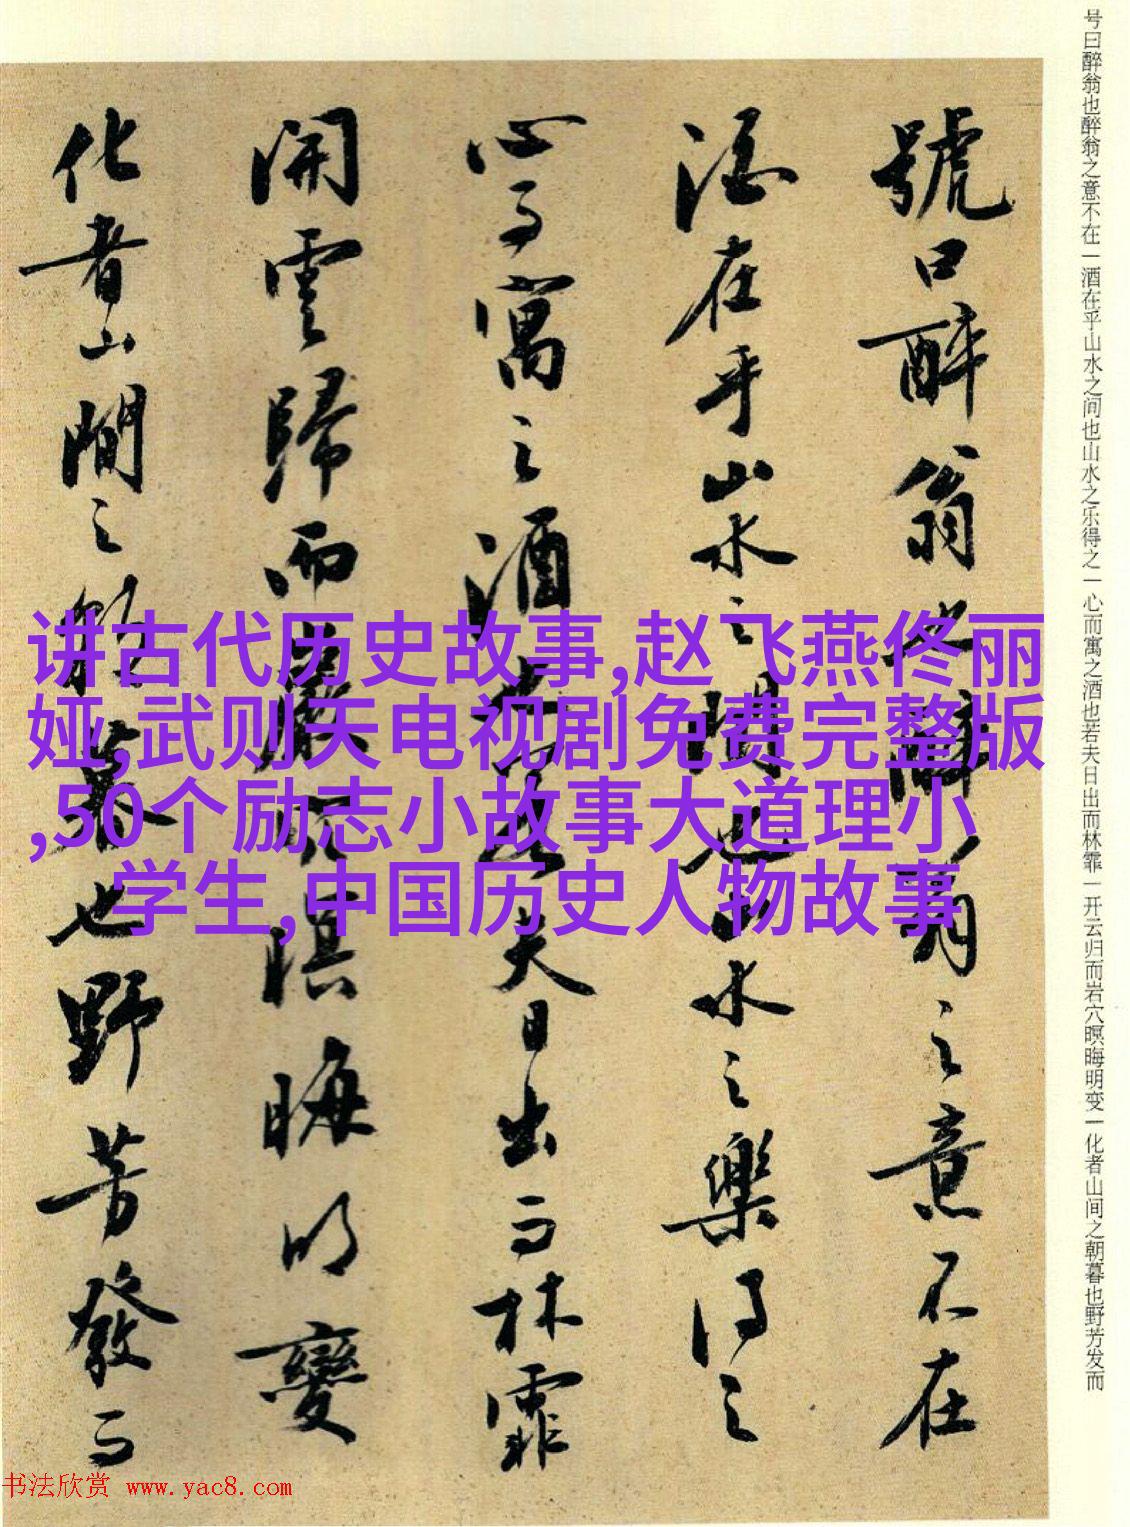 号曰醉翁也醉翁之意不在一酒在乎山水之间也山水之乐得之一心而寓之酒也若夫日出而林霏一开云归而岩穴暝晦明变一化者山间之朝暮也野芳发而
號曰醉翁也醉翁之意不在
酒在乎山水之間也山水之樂得之
心而寓之酒也若夫日出而林霏
開雲歸而巖穴暝晦明變
化者山間之朝暮也野芳發而
讲古代历史故事,赵飞燕佟丽
娅,武则天电视剧免费完整版
,50个励志小故事大道理小
学生,中国历史人物故事
书法欣赏 www.yac8.com